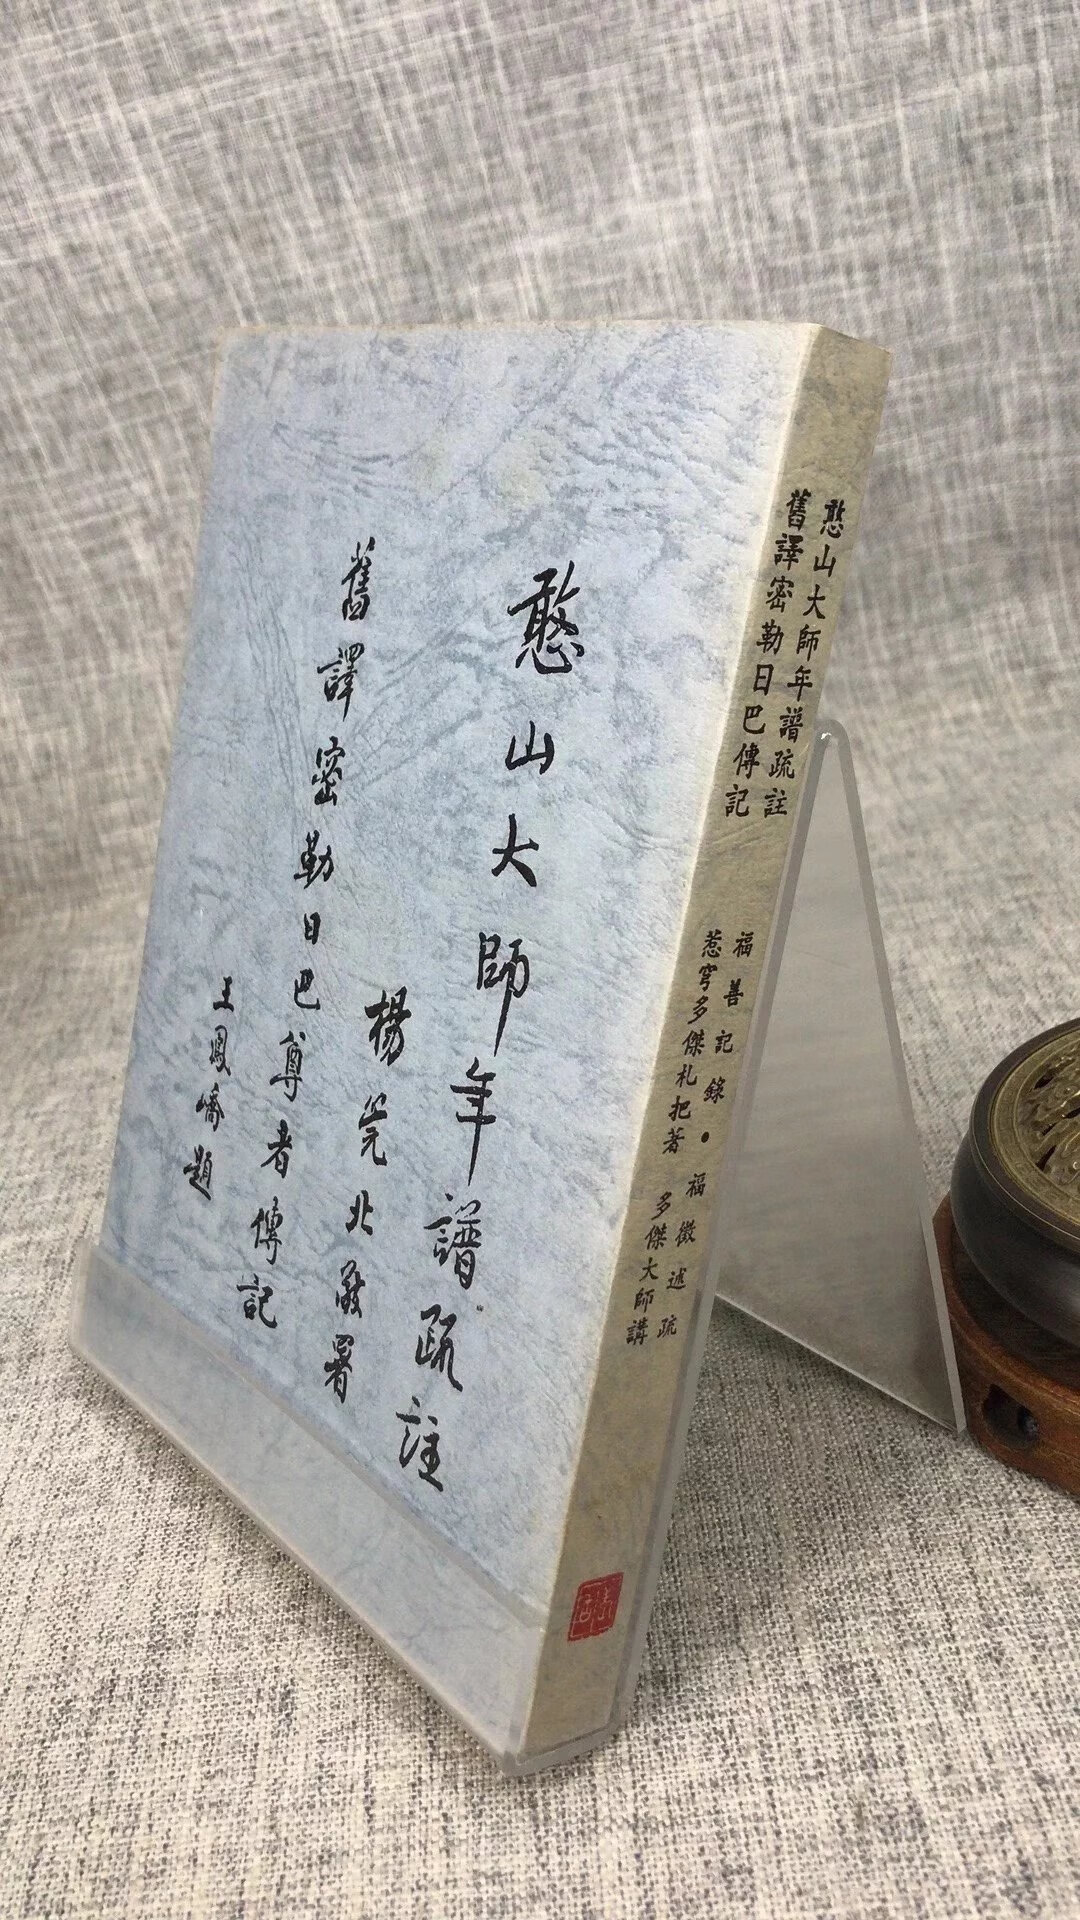 憨山大師年譜疏註
楊管北敬署
舊譯密勒日巴尊者傳記
王鳳嶠題
憨山大師年譜疏註
舊譯密勒日巴傳記
福善記錄・福徵述疏
惹穹多傑札把著 多傑大師講